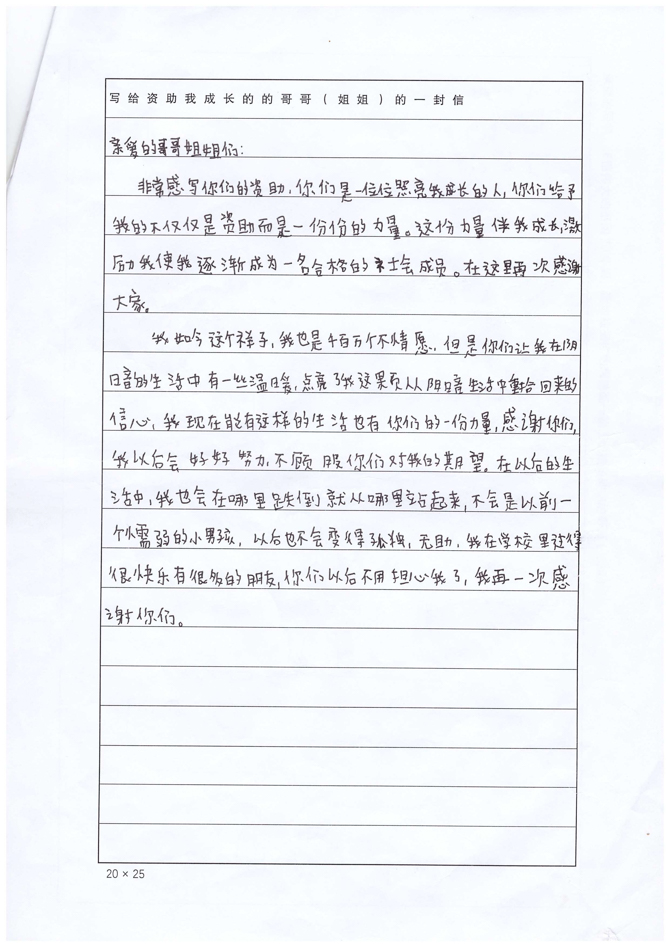 写给资助我成长的的哥哥（姐姐）的一封信
亲爱的哥哥姐姐们：
非常感写你们的资助，你们是一位位照亮我成长的人，你们给予
我的不仅仅是资助而是一份份的力量。这份力量伴我成长，激
励我使我逐渐成为一名合格的社会成员。在这里再次感谢
大家。
我如今这个样子，我也是千百万个不情愿，但是你们让我在阴
暗的生活中有一些温暖，点亮了我这颗从阴暗生活中重拾回来的
信心，我现在能有这样的生活也有你们的一份力量，感谢你们，
我以后会好好努力，不顾服你们对我的期望。在以后的生
活中，我也会在哪里跌倒就从哪里站起来，不会是以前一
个懦弱的小男孩，以后也不会变得孤独，无助，我在学校里过得
很快乐有很多的朋友，你们以后不用担心我了，我再一次感
谢你们。
20×25